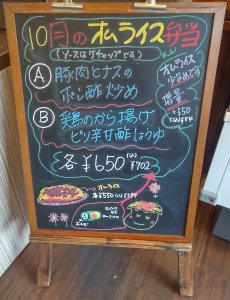 10月のオムライス弁当
(ソースはケチャップです)
Ⓐ 豚肉とナスの
ポン酢炒め
Ⓑ 鶏のから揚げ
ピリ辛甘酢しょうゆ
各¥650 ¥702
オムライス
少なめです
増量
¥50
オムライス
各¥550